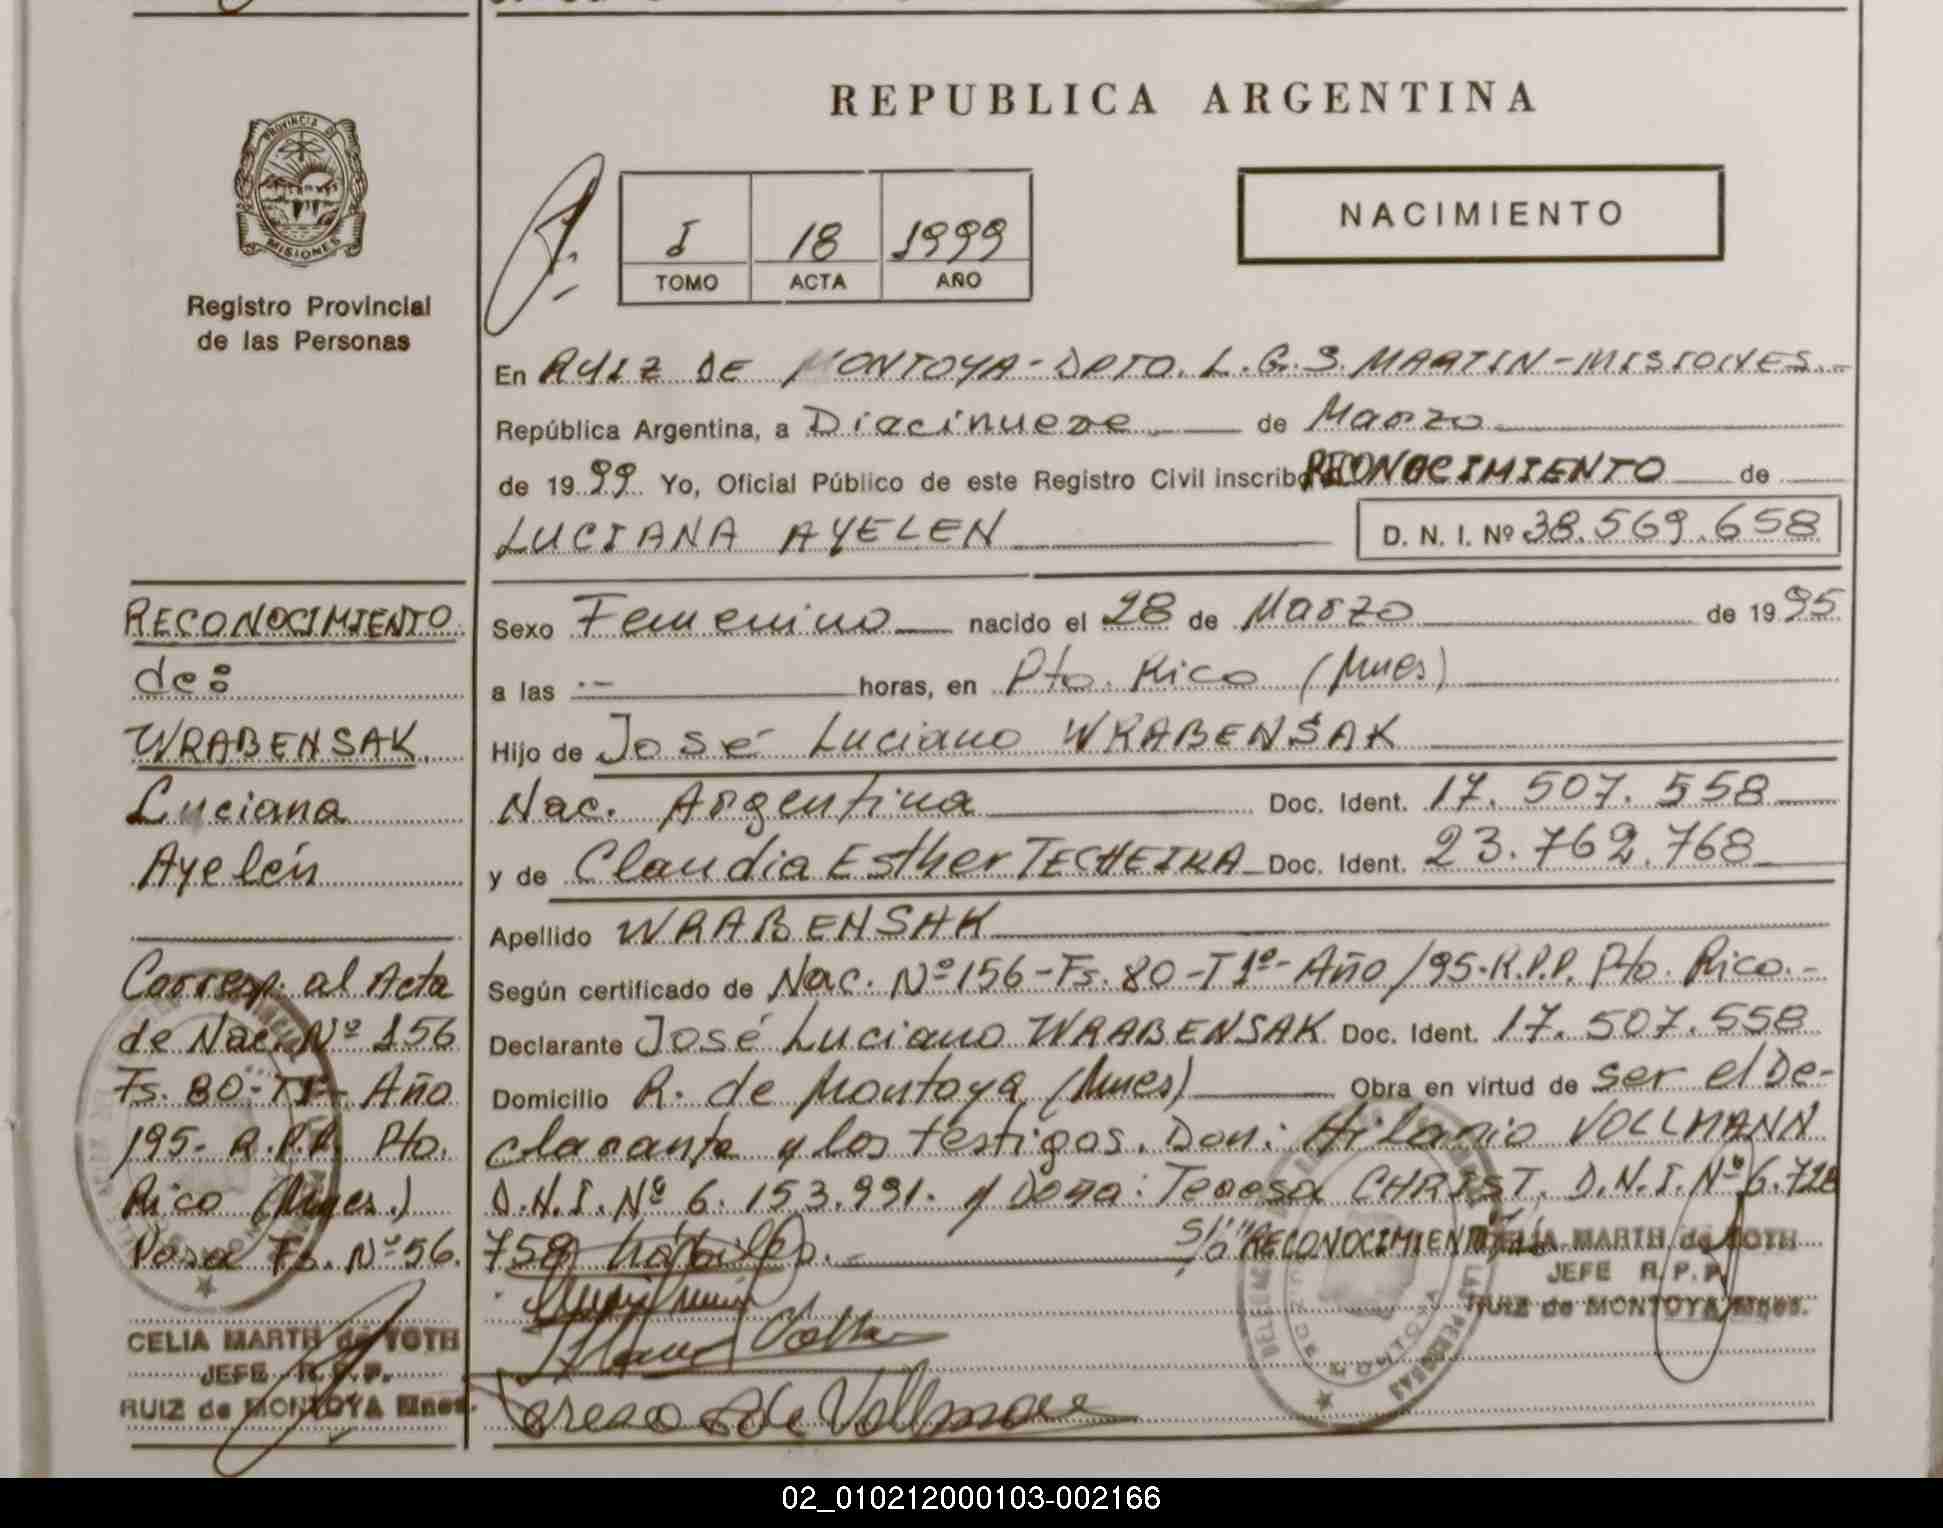 REPUBLICA ARGENTINA
PROVINCIA DE
MISIONES
Registro Provincial
de las Personas
I 18 1999
TOMO ACTA AÑO
NACIMIENTO
En RUIZ DE MONTOYA-DPTO. L.G.S. MARTIN-MISIONES.-
República Argentina, a Diecinueve de Marzo
de 1999 Yo, Oficial Público de este Registro Civil inscribo RECONOCIMIENTO de
LUCIANA AYELEN D. N. I. Nº 38.569.658
Sexo Femenino nacido el 28 de Marzo de 1995
a las -- horas, en Pto. Rico (Mnes)
Hijo de José Luciano WRABENSAK
Nac. Argentina Doc. Ident. 17.507.558
y de Claudia Esther TECHEIRA Doc. Ident. 23.762.768
Apellido WRABENSAK
Según certificado de Nac. Nº 156-Fs. 80-T1º- Año /95-R.P.P. Pto. Rico.-
Declarante José Luciano WRABENSAK Doc. Ident. 17.507.558
Domicilio R. de Montoya (Mnes) Obra en virtud de ser el De-
clarante y los testigos. Don: Hilario VOLLMANN
D.N.I. Nº 6.153.991. y Doña: Teresa CHRIST. D.N.I. Nº 6.728
758 hábiles.- S/o "RECONOCIMIENTO"
CELIA MARTH de TOTH
JEFE R.P.P.
RUIZ de MONTOYA Mnes.
RECONOCIMIENTO
de:
WRABENSAK
Luciana
Ayelén
Corresp. al Acta
de Nac. Nº 156
Fs. 80-T1º- Año
/95- R.P.P. Pto.
Rico (Mnes.)
Pasa Fs. Nº 56.
CELIA MARTH de TOTH
JEFE R.P.P.
RUIZ de MONTOYA Mnes.
02_010212000103-002166